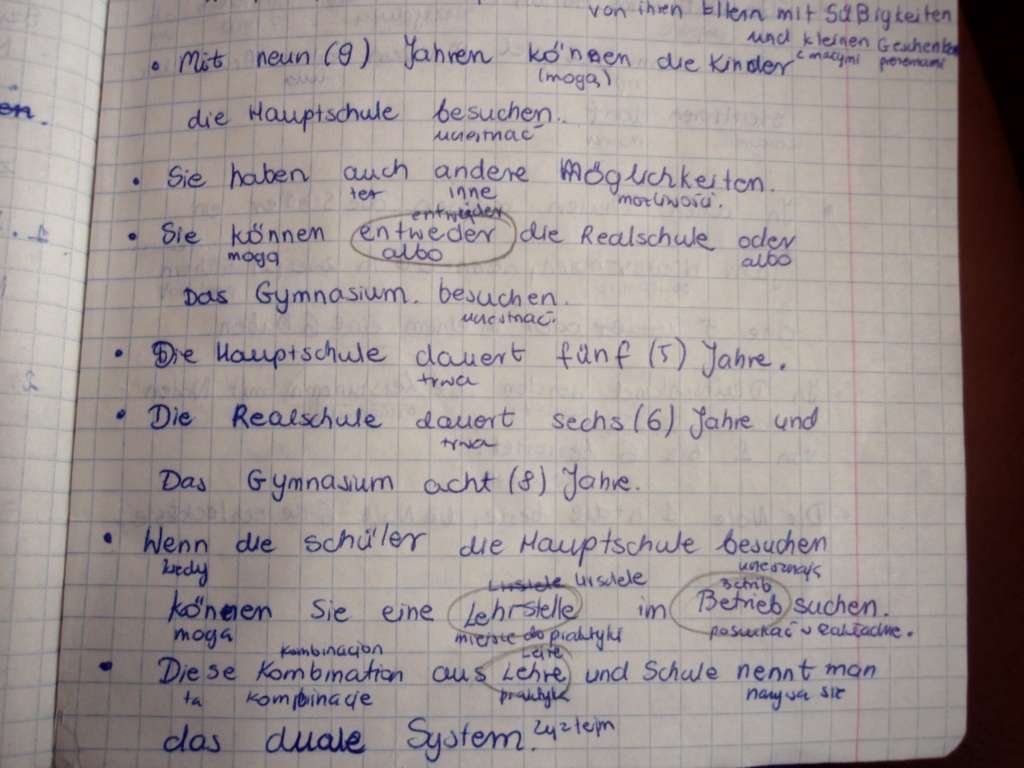 von ihren Eltern mit Süßigkeiten
und kleinen Geschenken
z małymi prezentami
• Mit neun (9) Jahren können die Kinder
(mogą)
die Hauptschule besuchen.
• Sie haben auch andere Möglichkeiten.
inne możliwości.
entweder
• Sie können entweder die Realschule oder
mogą albo albo
Das Gymnasium. besuchen.
• Die Hauptschule dauert fünf (5) Jahre.
trwa
• Die Realschule dauert sechs (6) Jahre und
trwa
Das Gymnasium acht (8) Jahre.
• Wenn die schüler die Hauptschule besuchen
kiedy
können Sie eine Lehrstelle im Betrieb suchen.
mogą miejsce do praktyki poszukać w zakładzie.
kombinacion
• Diese Kombination aus Lehre und Schule nennt man
ta kompbinacje praktyka nazywa się
das duale System.